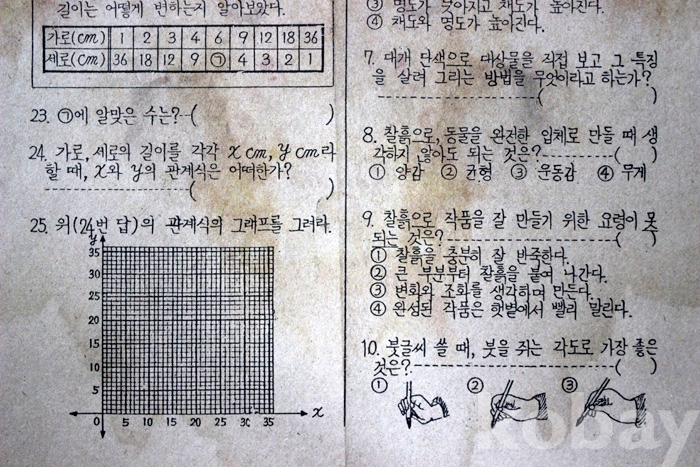 길이는 어떻게 변하는지 알아보았다.
가로(cm) 1 2 3 4 6 9 12 18 36
세로(cm) 36 18 12 9 ㉠ 4 3 2 1
23. ㉠에 알맞은 수는?( )
24. 가로, 세로의 길이를 각각 x cm, y cm라
할 때, x와 y의 관계식은 어떠한가?
( )
25. 위(24번 답)의 관계식의 그래프를 그려라.
y
35
30
25
20
15
10
5
0 5 10 15 20 25 30 35 x
③ 명도가 낮아지고 채도가 높아진다.
④ 채도와 명도가 높아진다.
7. 대개 단색으로 대상물을 직접 보고 그 특징
을 살려 그리는 방법을 무엇이라고 하는가?
( )
8. 찰흙으로, 동물을 완전한 입체로 만들 때 생
각하지 않아도 되는 것은?( )
① 양감 ② 균형 ③ 운동감 ④ 무게
9. 찰흙으로 작품을 잘 만들기 위한 요령이 못
되는 것은?( )
① 찰흙을 충분히 잘 반죽한다.
② 큰 부분부터 찰흙을 붙여 나간다.
③ 변화와 조화를 생각하며 만든다.
④ 완성된 작품은 햇볕에서 빨리 말린다.
10. 붓글씨 쓸 때, 붓을 쥐는 각도로 가장 좋은
것은?( )
① ② ③
Kobay